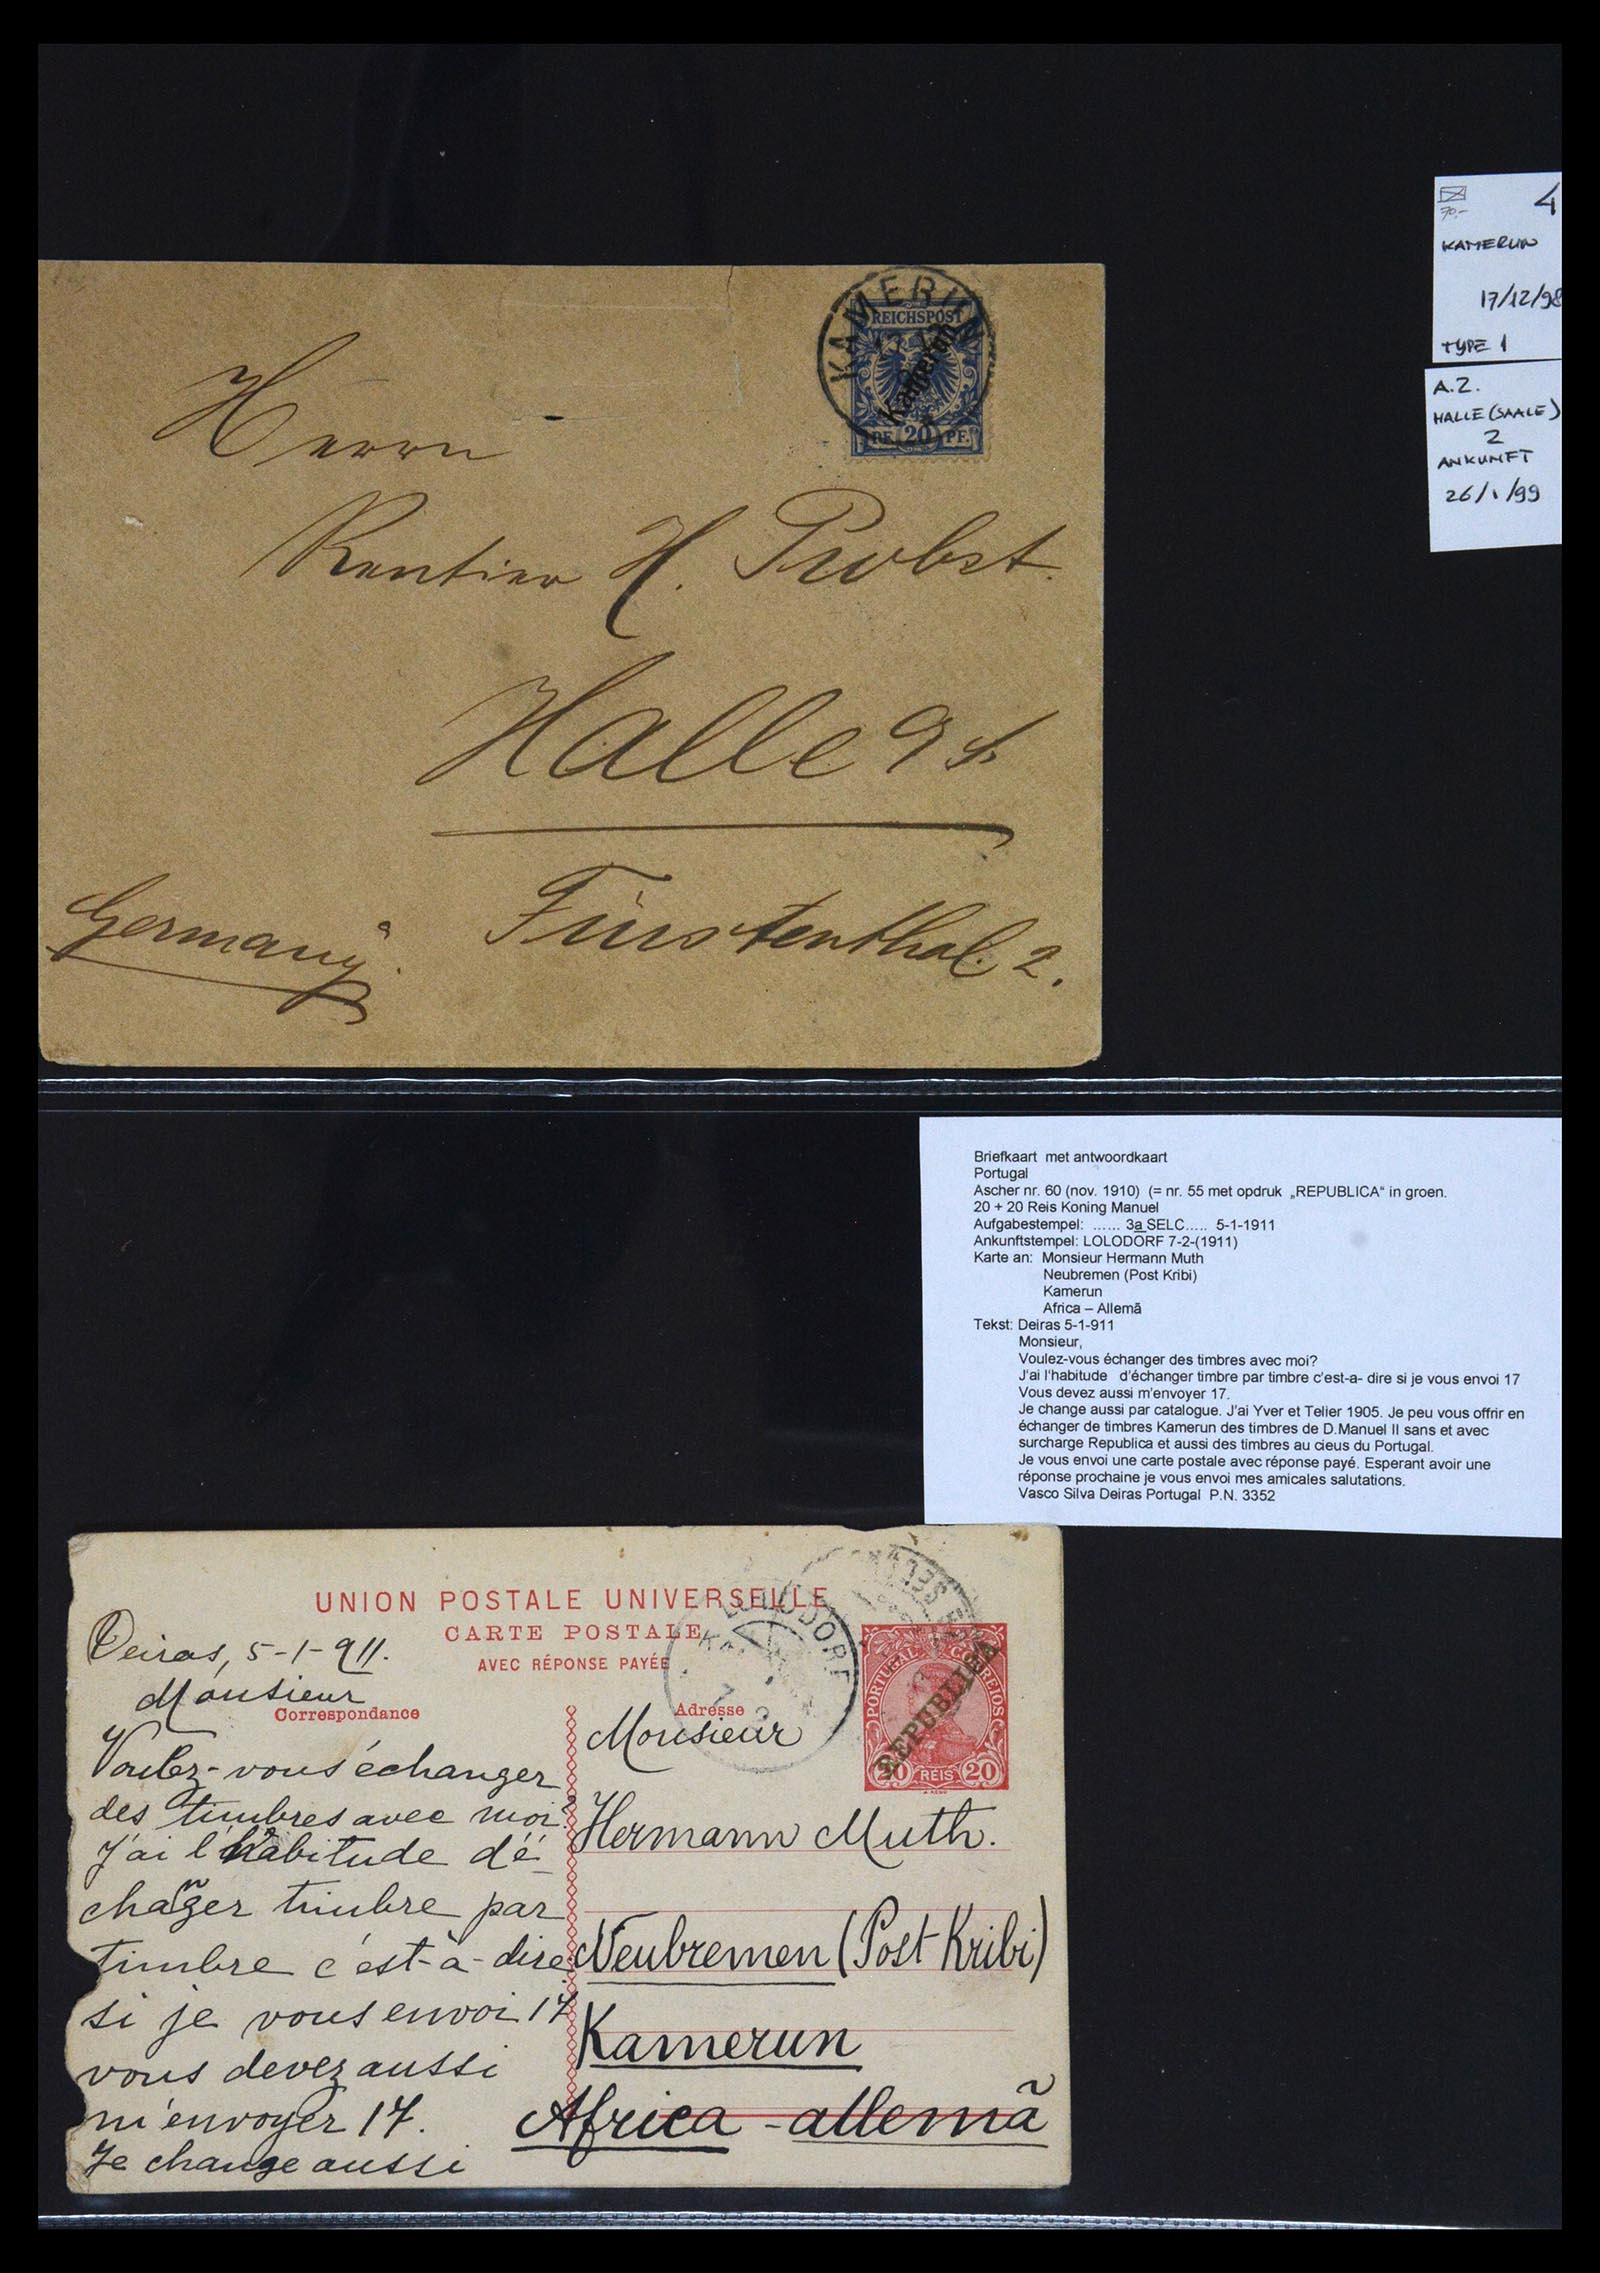 4
70.-
KAMERUN
17/12/98
TYPE 1
A.Z.
HALLE (SAALE)
2
ANKUNFT
26/1/99
KAMERUN
REICHSPOST
Kamerun
PF. 20 PF.
Herrn
Rentier H. Probst.
Halle a S.
Fürstenthal. 2.
Germany.
Briefkaart met antwoordkaart
Portugal
Ascher nr. 60 (nov. 1910) (= nr. 55 met opdruk „REPUBLICA“ in groen.
20 + 20 Reis Koning Manuel
Aufgabestempel: ...... 3a SELC..... 5-1-1911
Ankunftstempel: LOLODORF 7-2-(1911)
Karte an: Monsieur Hermann Muth
Neubremen (Post Kribi)
Kamerun
Africa – Allemã
Tekst: Deiras 5-1-911
Monsieur,
Voulez-vous échanger des timbres avec moi?
J'ai l'habitude d'échanger timbre par timbre c'est-a- dire si je vous envoi 17
Vous devez aussi m'envoyer 17.
Je change aussi par catalogue. J'ai Yver et Telier 1905. Je peu vous offrir en
échanger de timbres Kamerun des timbres de D.Manuel II sans et avec
surcharge Republica et aussi des timbres au cieus du Portugal.
Je vous envoi une carte postale avec réponse payé. Esperant avoir une
réponse prochaine je vous envoi mes amicales salutations.
Vasco Silva Deiras Portugal P.N. 3352
UNION POSTALE UNIVERSELLE
CARTE POSTALE
AVEC RÉPONSE PAYÉE
LOLODORF
7 2
PORTUGAL CORREIOS
REPUBLICA
20 REIS 20
Oeiras, 5-1-911.
Monsieur
Correspondance
Voulez-vous échanger
des timbres avec moi?
J'ai l'habitude d'é-
changer timbre par
timbre c'est-à-dire
si je vous envoi 17
vous devez aussi
m'envoyer 17.
Je change aussi
Adresse
Monsieur
Hermann Muth.
Neubremen (Post Kribi)
Kamerun
Africa - allemã